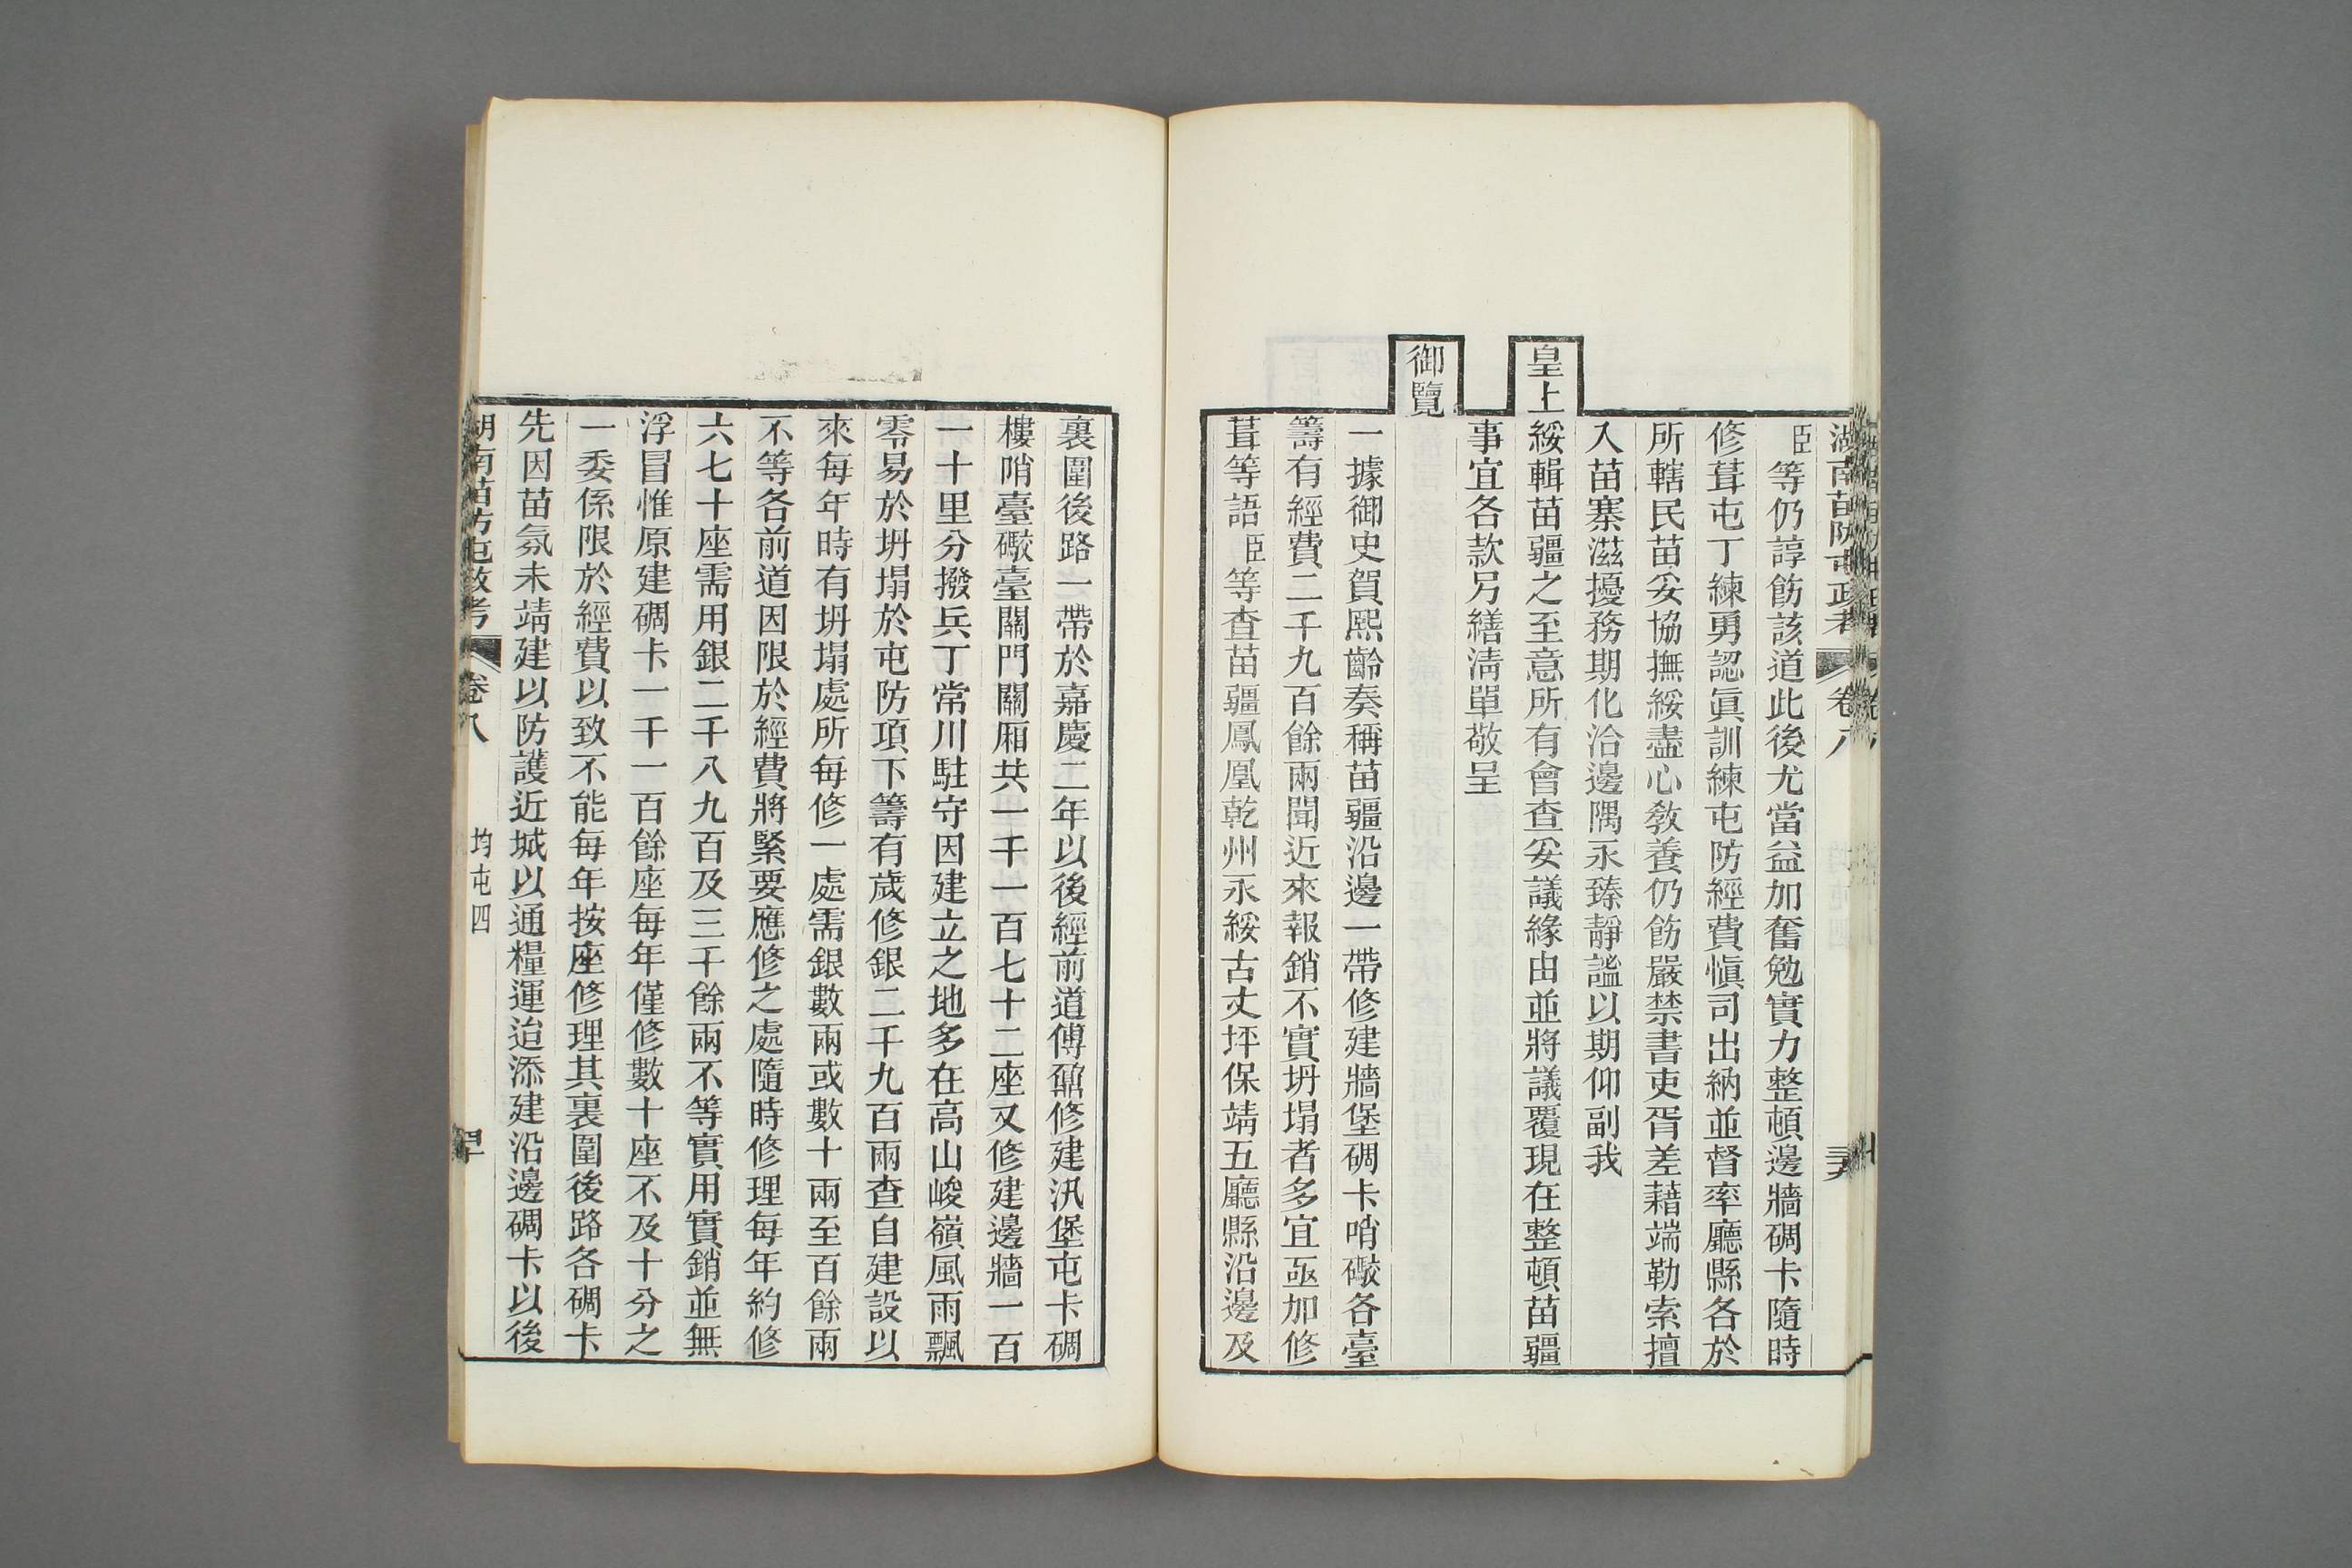 湖南苗防屯政考 卷八
臣等仍諄飭該道此後尤當益加奮勉實力整頓邊牆碉卡隨時
修葺屯丁練勇認眞訓練屯防經費愼司出納並督率廳縣各於
所轄民苗妥協撫綏盡心敎養仍飭嚴禁書吏胥差藉端勒索擅
入苗寨滋擾務期化洽邊隅永臻靜謐以期仰副我
皇上綏輯苗疆之至意所有會查妥議緣由並將議覆現在整頓苗疆
事宜各款另繕淸單敬呈
御覽
一據御史賀熙齡奏稱苗疆沿邊一帶修建牆堡碉卡哨礮各臺
籌有經費二千九百餘兩聞近來報銷不實坍塌者多宜亟加修
葺等語臣等查苗疆鳳凰乾州永綏古丈坪保靖五廳縣沿邊及
裏圍後路一帶於嘉慶二年以後經前道傅鼐修建汛堡屯卡碉
樓哨臺礮臺關門關廂共一千一百七十二座又修建邊牆一百
一十里分撥兵丁常川駐守因建立之地多在高山峻嶺風雨飄
零易於坍塌於屯防項下籌有歲修銀二千九百兩查自建設以
來每年時有坍塌處所每修一處需銀數兩或數十兩至百餘兩
不等各前道因限於經費將緊要應修之處隨時修理每年約修
六七十座需用銀二千八九百及三千餘兩不等實用實銷並無
浮冒惟原建碉卡一千一百餘座每年僅修數十座不及十分之
一委係限於經費以致不能每年按座修理其裏圍後路各碉卡
先因苗氛未靖建以防護近城以通糧運迨添建沿邊碉卡以後
湖南苗防屯政考 卷八 均屯四